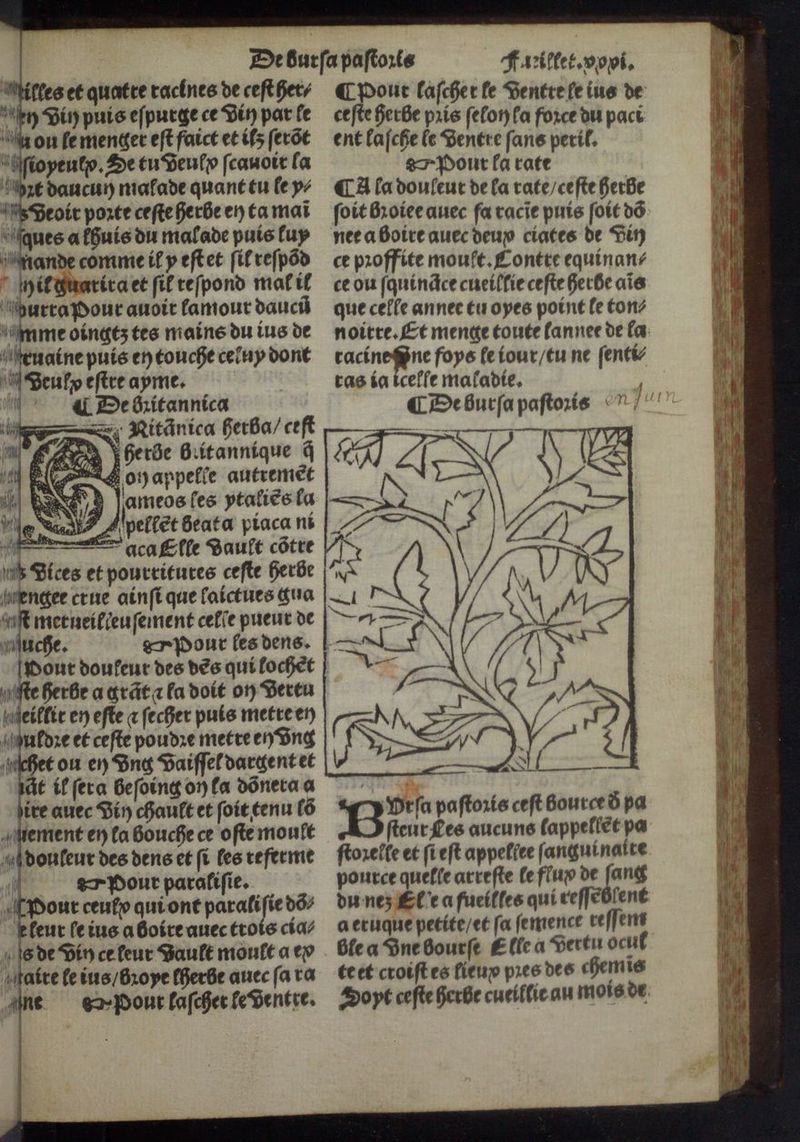 De bursa pastoris Fueillet.xxxi.
illes et quatre racines de cest her⸗
en Vin puis espurge ce Vin par le
ou le menger est faict et ilz serõt
ioyeulx. Se tu Veulx scauoir la
daucun malade quant tu le y⸗
Veoir porte ceste herbe en ta mai
ques a lhuis du malade puis luy
mande comme il y est et sil respõd
il guarira et sil respond mal il
Pour auoir lamour daucũ
oingtz tes mains du ius de
puis en touche celuy dont
Veulx estre ayme.
¶ De britannica
Ritãnica herba/ cest
herbe britannique q̃
on appelle autremẽt
ameos les ytaliẽs la
pellẽt beata piaca ni
aca Elle Vault cõtre
Vices et pourritures ceste herbe
crue ainsi que laictues gua
merueilleusement celle pueur de
☞ Pour les dens.
Pour douleur des dẽs qui lochẽt
ste herbe a grãt ⁊ la doit on Vertu
eillir en este ⁊ secher puis metre en
et ceste poudre metre en Vng
ou en Vng Vaissel dargent et
il sera besoing on la dõnera a
auec Vin chault et soit tenu lõ
en la bouche ce oste moult
douleur des dens et si les referme
☞ Pour paralisie.
¶ Pour ceulx qui ont paralisie dõ⸗
leur le ius a boire auec trois cia⸗
de Vin ce leur Vault moult a ex
le ius/broye lherbe auec sa ra
☞ Pour lascher le Ventre.
¶ Pour lascher le Ventre le ius de
ceste herbe pris selon la force du paci
ent lasche le Ventre sans peril.
☞ Pour la rate
¶ A la douleur de la rate/ceste herbe
soit broiee auec sa racie puis soit dõ
nee a boire auec deux ciates de Vin
ce proffite moult. Contre equinan⸗
ce ou squinãce cueillie ceste herbe aĩs
que celle annee tu oyes point le ton⸗
noirre. Et menge toute lannee de la
racine Vne foys le iour/tu ne senti⸗
ras ia icelle maladie.
¶ De bursa pastoris
BVrsa pastoris cest bource d̃ pa
steur Les aucuns lappellẽt pa
storelle et si est appellee sanguinaire
pource quelle arreste le flux de sang
du nez Elle a fueilles qui ressẽblent
a eruque petite/et sa semence ressem
ble a Vne bourse Elle a Vertu ocul
te et croist es lieux pres des chemĩs
Soyt ceste herbe cueillie au mois de